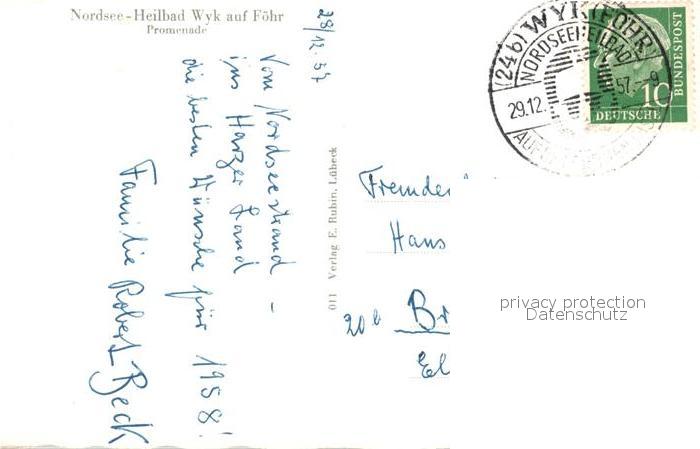 Nordsee-Heilbad Wyk auf Föhr
Promenade
28/12. 57
Vom Nordseestrand -
ins Harzer Land
die besten Wünsche für 1958!
Familie Robert Beck
011 Verlag E. Rubin, Lübeck
(24b) WYK (FÖHR)
NORDSEEHEILBAD
29.12. 57.-9
DEUTSCHE
BUNDESPOST
10
Fremden
Hans
20b Br
El
privacy protection
Datenschutz